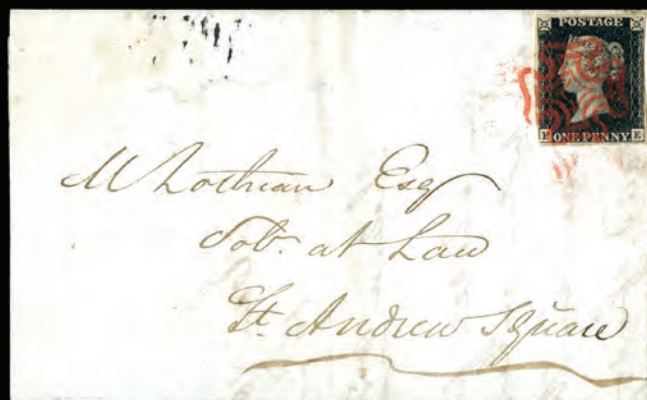 POSTAGE
I E
ONE PENNY
M Lothian Esq
Sol.r at Law
St. Andrew Square